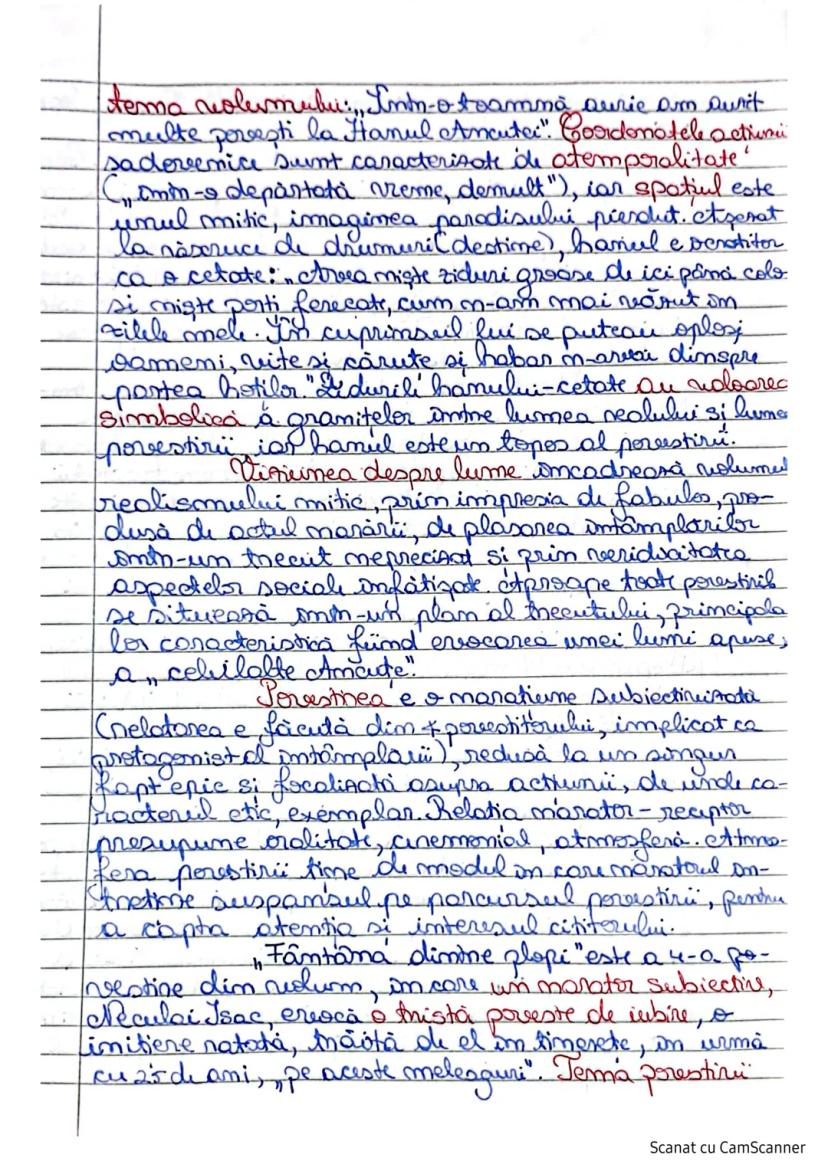 tema volumului: „Într-o toamnă aurie am auzit
multe povești la Hanul Ancuței". Coordonatele acțiunii
sadoveniene sunt caracterizate de atemporalitate
(„într-o depărtată vreme, demult"), iar spațiul este
unul mitic, imaginea paradisului pierdut. Așezat
la răscruce de drumuri (destine), hanul e ocrotitor
ca o cetate: „Avea niște ziduri groase de ici până colo
și niște porți ferecate, cum n-am mai văzut în
zilele mele. În cuprinsul lui se puteau oploși
oameni, vite și căruțe și habar n-aveau dinspre
partea hoților." Zidurile hanului-cetate au valoarea
simbolică a granițelor între lumea realului și lumea
povestirii, iar hanul este un topos al povestirii.
Viziunea despre lume încadrează volumul
realismului mitic, prin impresia de fabulos, pro-
dusă de actul narării, de plasarea întâmplărilor
într-un trecut neprecizat și prin veridicitatea
aspectelor sociale înfățișate. Aproape toate povestirile
se situează într-un plan al trecutului, principala
lor caracteristică fiind evocarea unei lumi apuse,
a „celeilalte Ancuțe".
Povestirea e o narațiune subiectivizată
(relatarea e făcută din * povestitorului, implicat ca
protagonist al întâmplării), redusă la un singur
fapt epic și focalizată asupra acțiunii, de unde ca-
racterul etic, exemplar. Relația narator - receptor
presupune oralitate, ceremonial, atmosferă. Atmos-
fera povestirii ține de modul în care naratorul în-
treține suspansul pe parcursul povestirii, pentru
a capta atenția și interesul cititorului.
„Fântâna dintre plopi" este a 4-a po-
vestire din volum, în care un narator subiectiv,
Neculai Isac, evocă o tristă poveste de iubire, o
inițiere ratată, trăită de el în tinerețe, în urmă
cu 25 de ani, „pe aceste meleaguri". Tema povestirii
Scanat cu CamScanner